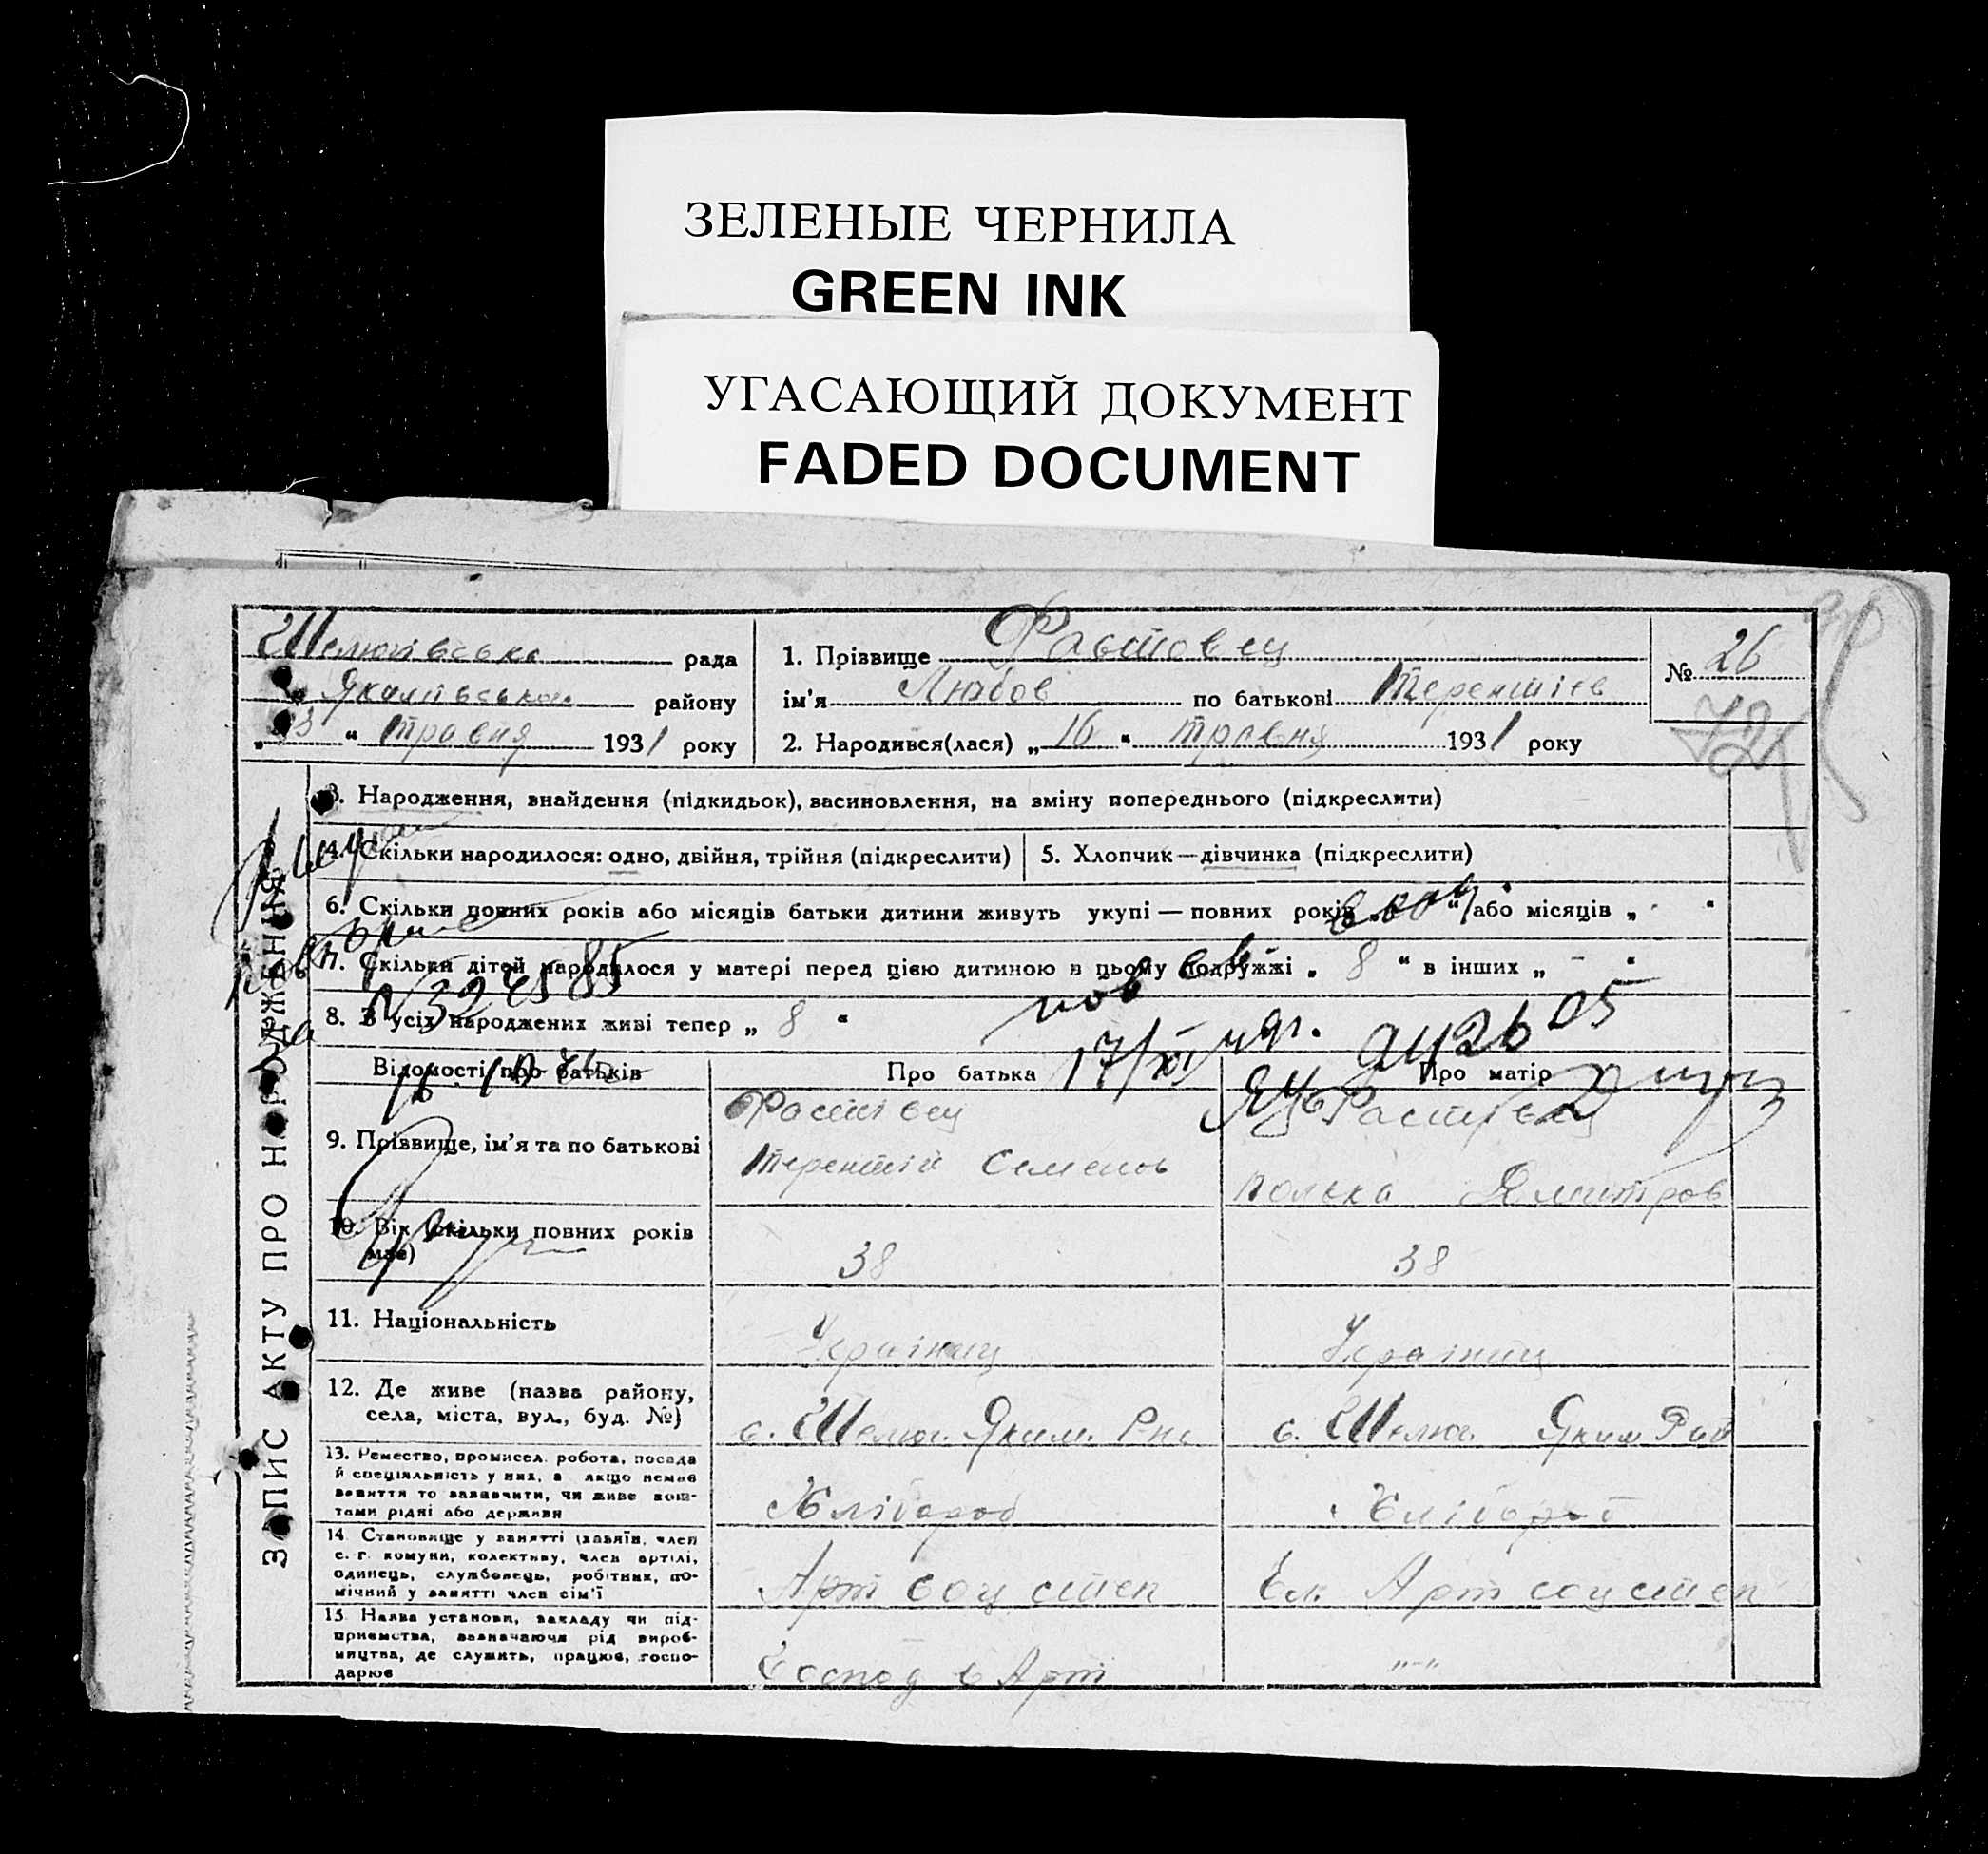 ЗЕЛЕНЫЕ ЧЕРНИЛА
GREEN INK
УГАСАЮЩИЙ ДОКУМЕНТ
FADED DOCUMENT
Шелюгівська рада
Якимівська району
23 " травня 1931 року
1. Прізвище Растовец
ім'я Любов по батькові Терентіев
2. Народився(лася) „ 16 " травня 1931 року
№ 26
72
ЗАПИС АКТУ ПРО НАРОДЖЕННЯ
3. Народження, знайдення (підкидьок), васиновлення, на зміну попереднього (підкреслити)
4. Скільки народилося: одно, двійня, трійня (підкреслити)
5. Хлопчик—дівчинка (підкреслити)
6. Скільки повних років або місяців батьки дитини живуть укупі — повних років „ " або місяців „ - "
7. Скільки дітей народилося у матері перед цією дитиною в цьому подружжі „ 8 " в інших „ - "
8. З усіх народжених живі тепер „ 8 "
Відомості про батьків
Про батька
Про матір
9. Прізвище, ім'я та по батькові
Растівец
Терентій Семенов
Растівец
полька Дмитров
10. Вік (скільки повних років має)
38
38
11. Національність
Українец
Українец
12. Де живе (назва району,
села, міста, вул., буд. №)
с. Шелюг. Яким. Рис
с. Шелюг. Яким Рай
13. Ремество, промисел, робота, посада
й спеціяльність у них, а якщо немає
заняття то зазначити, чи живе кош-
тами рідні або держави
Хлібороб
Хлібороб
14. Становище у занятті (хазяїн, член
с. г. комуни, колективу, член артілі,
одинець, службовець, робітник, по-
мічний у занятті член сім'ї
Арт соц степ
Чл. Арт соц степ
15. Назва установи, закладу чи під-
приємства, зазначаючи рід вироб-
ництва, де служить, працює, госпо-
дарює
Господ в Арт
"-"